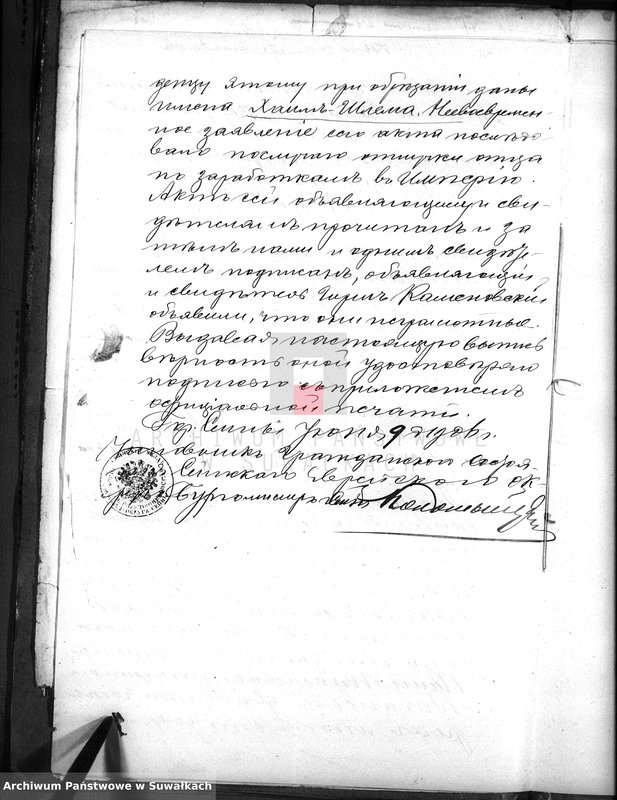 денцу этому при обрезанiи даны
имена Хаимъ-Шлема. Несвоевремен-
ное заявленiе сего акта послѣдо
вало по случаю отлучки отца
по заработкамъ въ Имперiю.
Актъ сей объявляющему и сви-
дѣтелямъ прочитанъ и за
тѣмъ нами и однимъ свидѣте-
лемъ подписанъ, объявляющiй
и свидѣтель Каменовскiй
объявили, что они неграмотные.
Выдавая настоящую выпись
вѣрность оной удостовѣряю
подписью съ приложенiемъ
оффицiальной печати.
Гор. Сейны Iюня 9 дня
Чиновникъ Гражданскаго состоя-
Сейнскаго Еврейскаго ок-
руга Бургомистръ
ARCHIWUM PAŃSTWOWE
W SUWAŁKACH
Archiwum Państwowe w Suwałkach